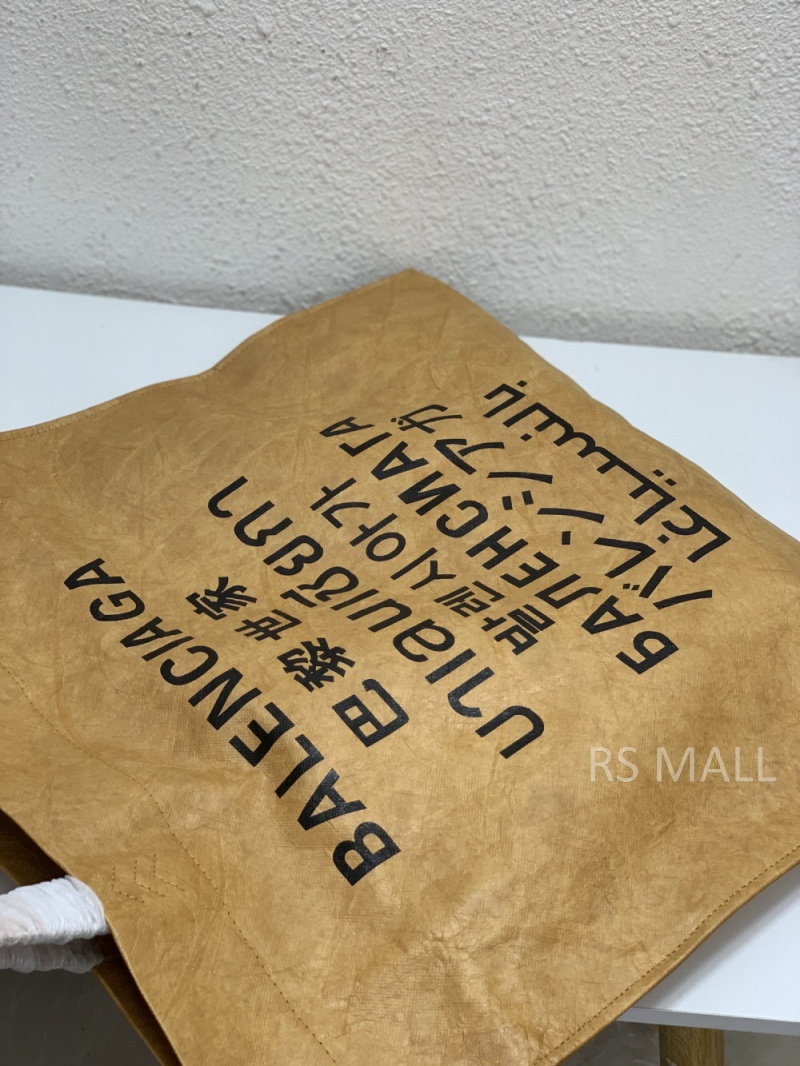 BALENCIAGA
巴黎世家
บาเลนเซียกา
발렌시아가
БАЛЕНСИАГА
バレンシアガ
بالنسياغا
RS MALL